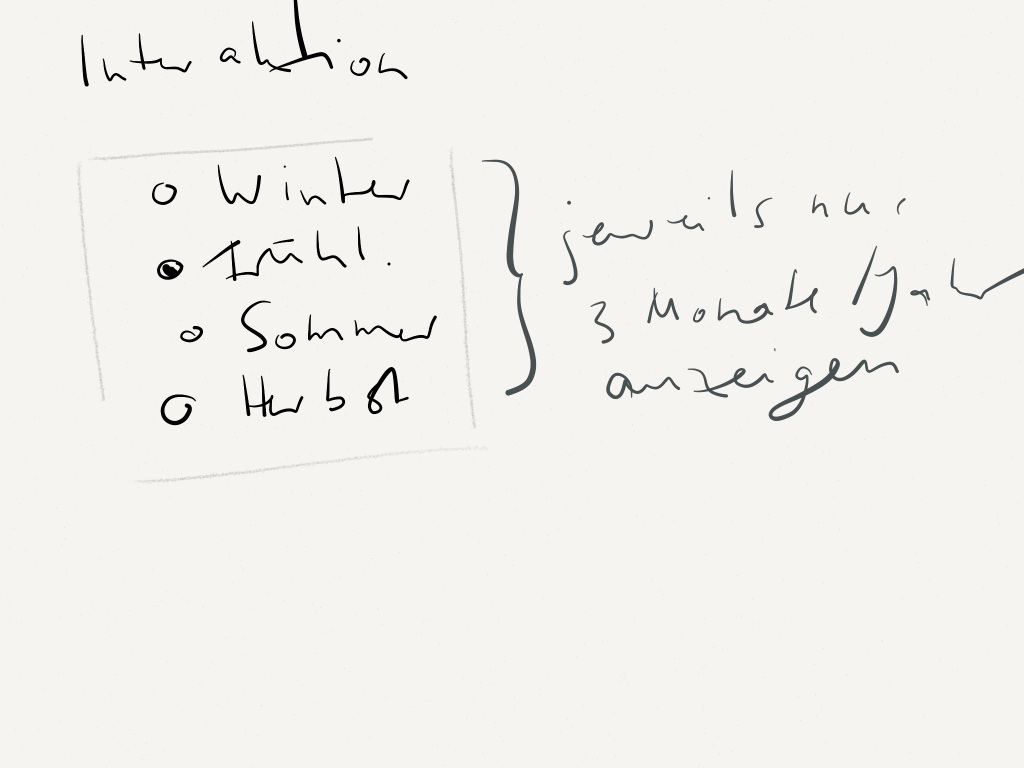 Interaktion
Winter
Frühl.
Sommer
Herbst
jeweils nur
3 Monate / Jahr
anzeigen